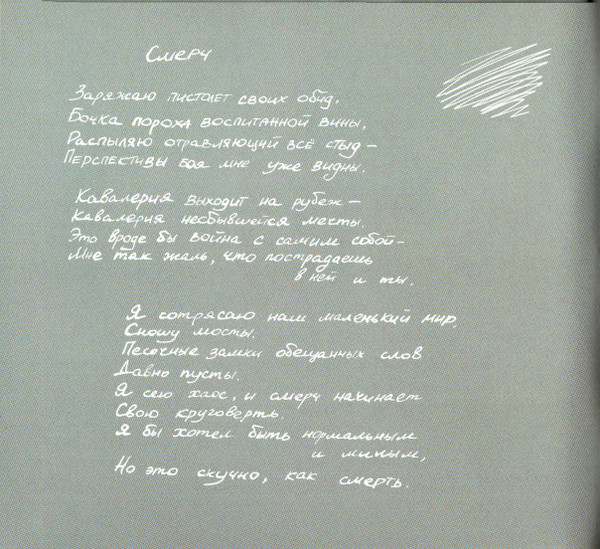 Смерч
Заряжаю пистолет своих обид,
Бочка пороха воспитанной вины,
Распыляю отравляющий всё стыд –
Перспективы боя мне уже видны.
Кавалерия выходит на рубеж –
Кавалерия несбывшейся мечты.
Это вроде бы война с самим собой –
Мне так жаль, что пострадаешь
в ней и ты.
Я сотрясаю наш маленький мир,
Сношу мосты.
Песочные замки обещанных слов
Давно пусты.
Я сею хаос, и смерч начинает
Свою круговерть.
Я бы хотел быть нормальным
и милым,
Но это скучно, как смерть.